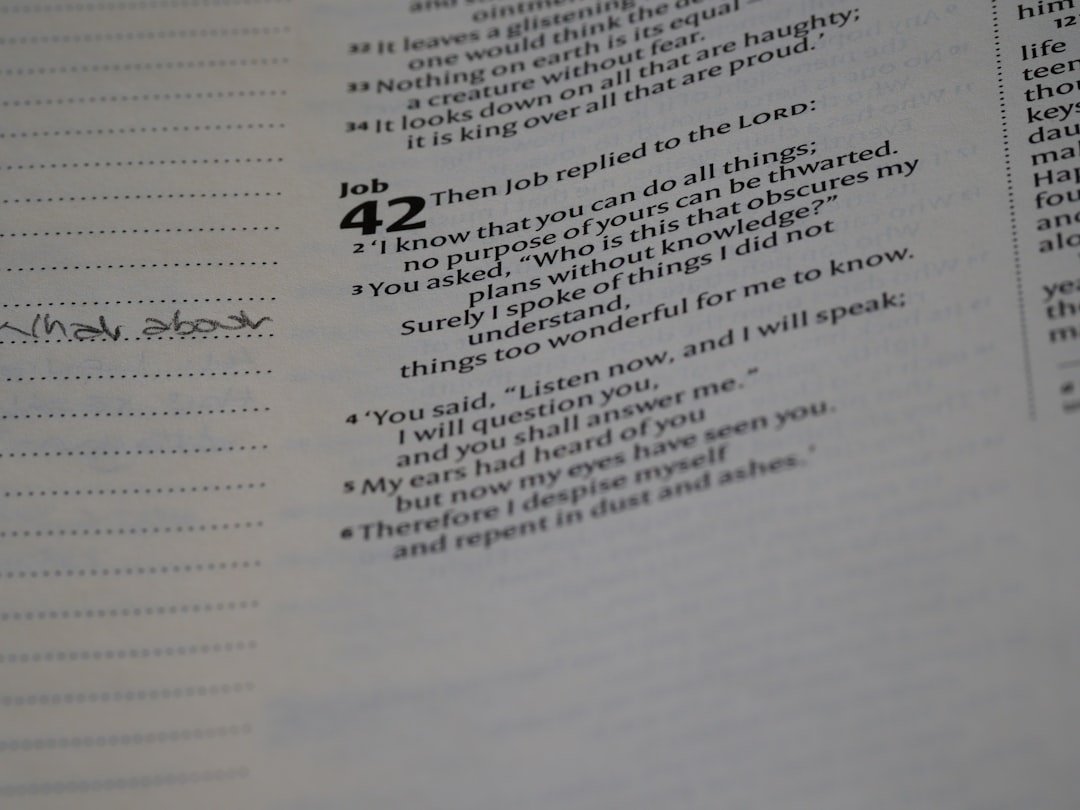 What about
and
ointment
32 It leaves a glistening
one would think the de
33 Nothing on earth is its equal –
a creature without fear.
34 It looks down on all that are haughty;
it is king over all that are proud.’
Job
42 Then Job replied to the LORD:
2 ‘I know that you can do all things;
no purpose of yours can be thwarted.
3 You asked, “Who is this that obscures my
plans without knowledge?”
Surely I spoke of things I did not
understand,
things too wonderful for me to know.
4 ‘You said, “Listen now, and I will speak;
I will question you,
and you shall answer me.”
5 My ears had heard of you
but now my eyes have seen you.
6 Therefore I despise myself
and repent in dust and ashes.’
him
12
life
teen
thou
keys
dau
mal
Hap
fou
and
alo
yea
the
m